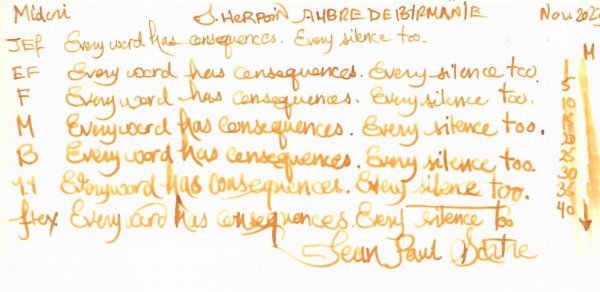 Midori J. HERBIN AMBRE DE BIRMANIE Nov. 2023
JEF Every word has consequences. Every silence too.
EF Every word has consequences. Every silence too.
F Every word has consequences. Every silence too.
M Every word has consequences. Every silence too.
B Every word has consequences. Every silence too.
1.1 Every word has consequences. Every silence too.
flex Every word has consequences. Every silence too
Jean Paul Sartre
M
1
5
10
15
20
25
30
35
40